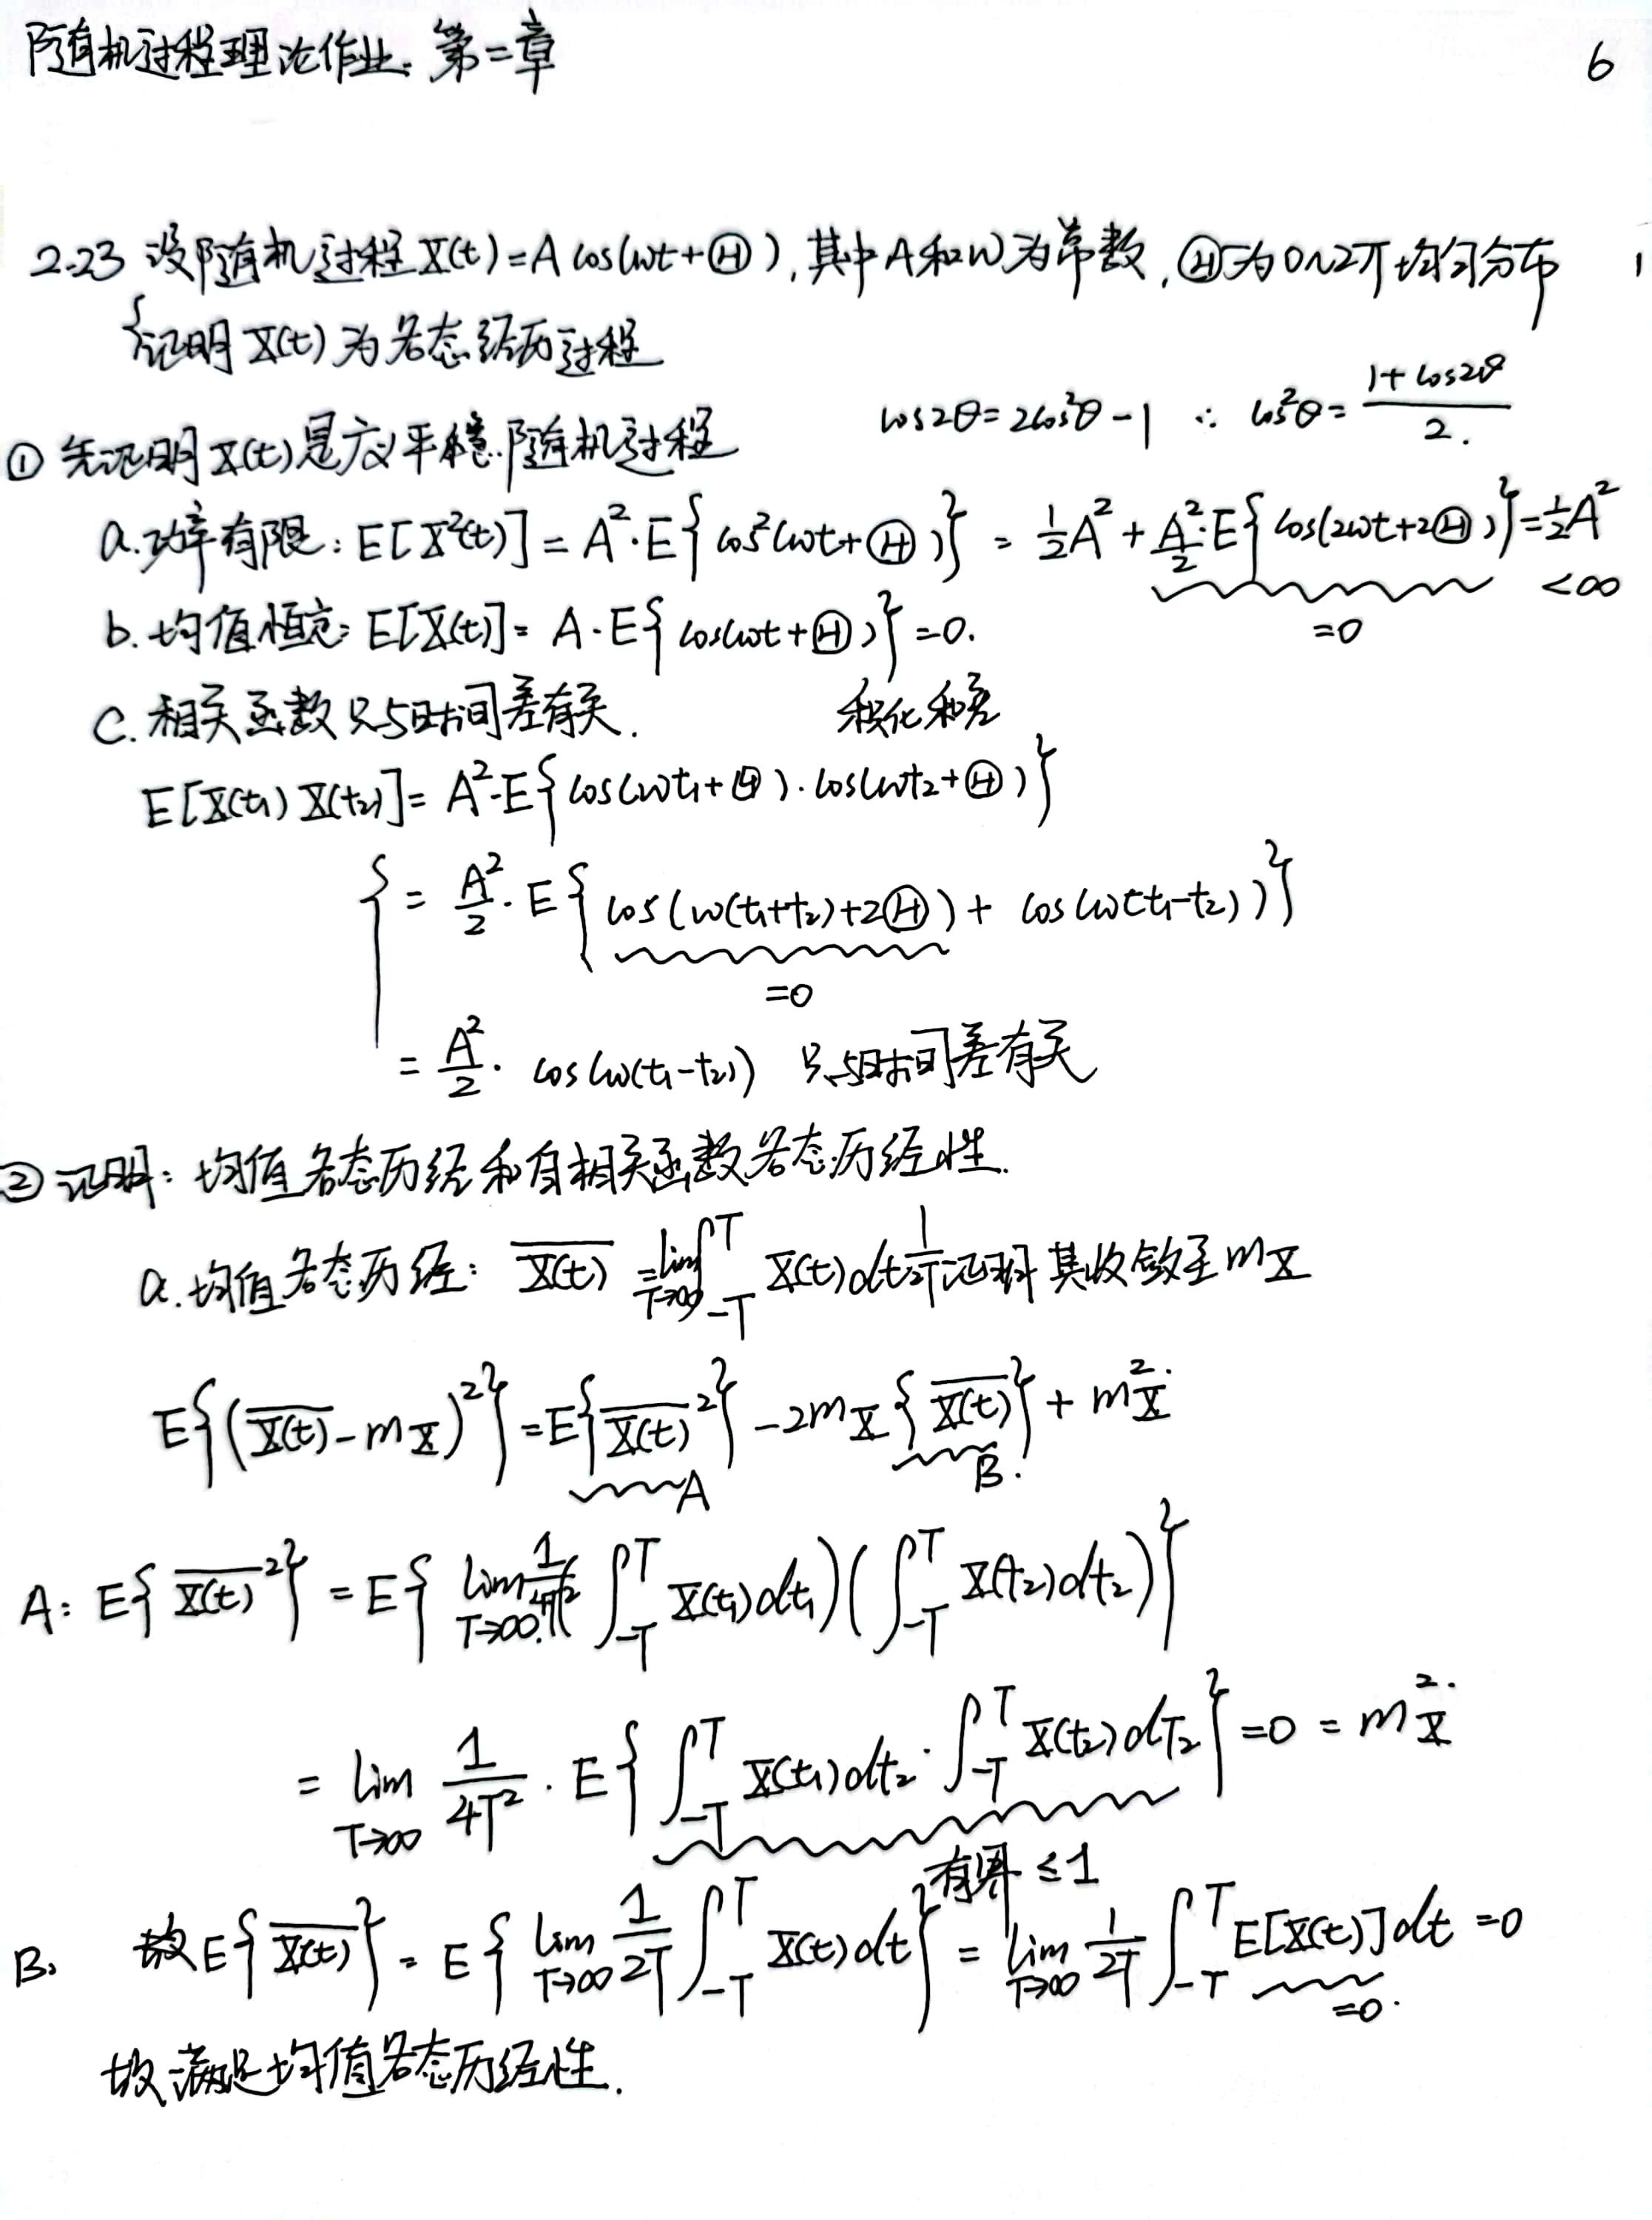 随机过程理论作业. 第二章 6
2.23 设随机过程X(t)=A cos(ωt+Θ), 其中A和ω为常数, Θ为0~2π均匀分布 1
{证明X(t)为各态经历过程
cos2θ=2cos²θ-1 ∴ cos²θ=(1+cos2θ)/2.
① 先证明X(t)是广义平稳随机过程
a.功率有限: E[X²(t)] = A²·E{cos²(ωt+Θ)} = ½A² + A²/2·E{cos(2ωt+2Θ)}=½A²
=0 <∞
b. 均值恒定: E[X(t)] = A·E{cos(ωt+Θ)}=0.
c. 相关函数只与时间差有关. 积化和差
E[X(t₁)X(t₂)] = A²·E{cos(ωt₁+Θ)·cos(ωt₂+Θ)}
{= A²/2·E{cos(ω(t₁+t₂)+2Θ) + cos(ω(t₁-t₂))}
=0
= A²/2· cos(ω(t₁-t₂)) 只与时间差有关
② 证明: 均值各态历经和自相关函数各态历经性.
a.均值各态历经: X̅(̅t̅)̅ = lim T→∞ ∫_{-T}^{T} X(t)dt 1/2T 证明其收敛至m_X
E{(X̅(̅t̅)̅-m_X)²} = E{X̅(̅t̅)̅²} - 2m_X{X̅(̅t̅)̅} + m²_X.
A B.
A: E{X̅(̅t̅)̅²} = E{lim T→∞ 1/4T² (∫_{-T}^{T} X(t₁)dt₁)(∫_{-T}^{T} X(t₂)dt₂)}
= lim T→∞ 1/4T² · E{∫_{-T}^{T} X(t₁)dt₂·∫_{-T}^{T} X(t₂)dT₂} = 0 = m²_X.
有界 ≤1
B. 故E{X̅(̅t̅)̅} = E{lim T→∞ 1/2T ∫_{-T}^{T} X(t)dt} = lim T→∞ 1/2T ∫_{-T}^{T} E[X(t)]dt =0
=0.
故满足均值各态历经性.